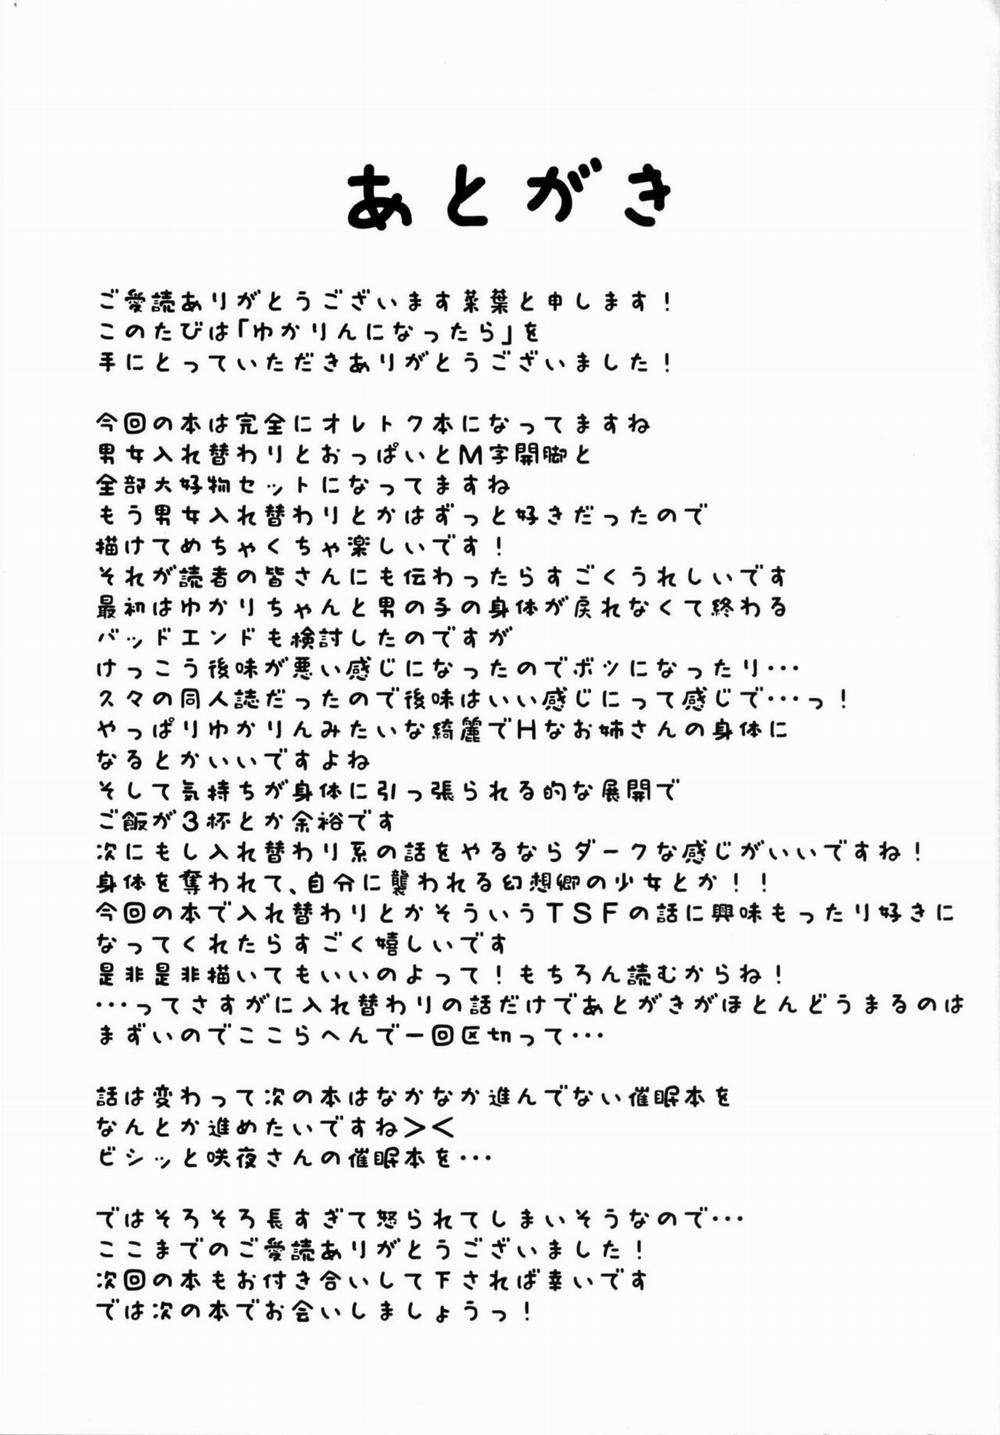 あとがき
ご愛読ありがとうございます菜葉と申します！
このたびは「ゆかりんになったら」を
手にとっていただきありがとうございました！
今回の本は完全にオレトク本になってますね
男女入れ替わりとおっぱいとM字開脚と
全部大好物セットになってますね
もう男女入れ替わりとかはずっと好きだったので
描けてめちゃくちゃ楽しいです！
それが読者の皆さんにも伝わったらすごくうれしいです
最初はゆかりちゃんと男の子の身体が戻れなくて終わる
バッドエンドも検討したのですが
けっこう後味が悪い感じになったのでボツになったり･･･
久々の同人誌だったので後味はいい感じにって感じで･･･っ！
やっぱりゆかりんみたいな綺麗でHなお姉さんの身体に
なるとかいいですよね
そして気持ちが身体に引っ張られる的な展開で
ご飯が3杯とか余裕です
次にもし入れ替わり系の話をやるならダークな感じがいいですね！
身体を奪われて、自分に襲われる幻想郷の少女とか！！
今回の本で入れ替わりとかそういうTSFの話に興味もったり好きに
なってくれたらすごく嬉しいです
是非是非描いてもいいのよって！もちろん読むからね！
･･･ってさすがに入れ替わりの話だけであとがきがほとんどうまるのは
まずいのでここらへんで一回区切って･･･
話は変わって次の本はなかなか進んでない催眠本を
なんとか進めたいですね＞＜
ビシッと咲夜さんの催眠本を･･･
ではそろそろ長すぎて怒られてしまいそうなので･･･
ここまでのご愛読ありがとうございました！
次回の本もお付き合いして下されば幸いです
では次の本でお会いしましょうっ！